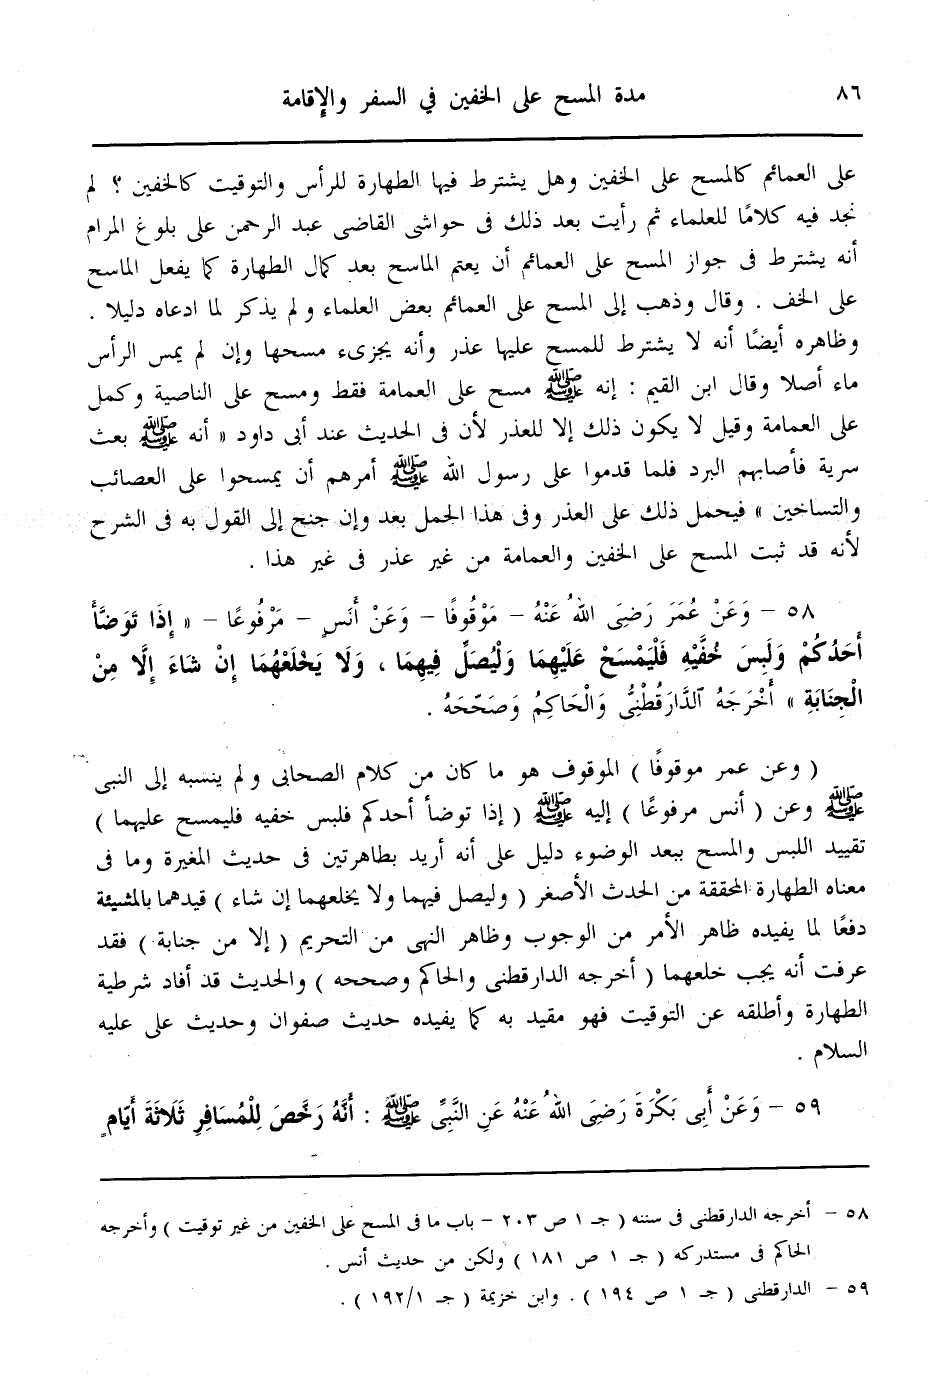 ٨٦
مدة المسح على الخفين في السفر والإقامة
على العمائم كالمسح على الخفين وهل يشترط فيها الطهارة للرأس والتوقيت كالخفين ؟ لم
نجد فيه كلامًا للعلماء ثم رأيت بعد ذلك فى حواشى القاضى عبد الرحمن على بلوغ المرام
أنه يشترط فى جواز المسح على العمائم أن يعتم الماسح بعد كمال الطهارة كما يفعل الماسح
على الخف . وقال وذهب إلى المسح على العمائم بعض العلماء ولم يذكر لما ادعاه دليلا .
وظاهره أيضًا أنه لا يشترط للمسح عليها عذر وأنه يجزىء مسحها وإن لم يمس الرأس
ماء أصلا وقال ابن القيم : إنه ﷺ مسح على العمامة فقط ومسح على الناصية وكمل
على العمامة وقيل لا يكون ذلك إلا للعذر لأن فى الحديث عند أبى داود « أنه ﷺ بعث
سرية فأصابهم البرد فلما قدموا على رسول الله ﷺ أمرهم أن يمسحوا على العصائب
والتساخين » فيحمل ذلك على العذر وفى هذا الحمل بعد وإن جنح إلى القول به فى الشرح
لأنه قد ثبت المسح على الخفين والعمامة من غير عذر فى غير هذا .
٥٨ – وَعَنْ عُمَرَ رَضِىَ اللهُ عَنْهُ – مَوْقُوفًا – وَعَنْ أَنَسٍ – مَرْفُوعًا – « إِذَا تَوَضَّأَ
أَحَدُكُمْ وَلَبِسَ خُفَّيْهِ فَلْيَمْسَحْ عَلَيْهِمَا وَلْيُصَلِّ فِيهِمَا ، وَلَا يَخْلَعْهُمَا إِنْ شَاءَ إِلَّا مِنْ
الْجِنَابَةِ » أَخْرَجَهُ الدَّارَقُطْنِىُّ وَالْحَاكِمُ وَصَحَّحَهُ .
( وعن عمر موقوفًا ) الموقوف هو ما كان من كلام الصحابى ولم ينسبه إلى النبى
ﷺ وعن ( أنس مرفوعًا ) إليه ﷺ ( إذا توضأ أحدكم فلبس خفيه فليمسح عليهما )
تقييد اللبس والمسح ببعد الوضوء دليل على أنه أريد بطاهرتين فى حديث المغيرة وما فى
معناه الطهارة المحققة من الحدث الأصغر ( وليصل فيهما ولا يخلعهما إن شاء ) قيدهما بالمشيئة
دفعًا لما يفيده ظاهر الأمر من الوجوب وظاهر النهى من التحريم ( إلا من جنابة ) فقد
عرفت أنه يجب خلعهما ( أخرجه الدارقطنى والحاكم وصححه ) والحديث قد أفاد شرطية
الطهارة وأطلقه عن التوقيت فهو مقيد به كما يفيده حديث صفوان وحديث على عليه
السلام .
٥٩ – وَعَنْ أَبِى بَكْرَةَ رَضِىَ اللهُ عَنْهُ عَنِ النَّبِىِّ ﷺ : أَنَّهُ رَخَّصَ لِلْمُسَافِرِ ثَلَاثَةَ أَيَّامٍ
٥٨ – أخرجه الدارقطنى فى سننه ( جـ ١ ص ٢٠٣ – باب ما فى المسح على الخفين من غير توقيت ) وأخرجه
الحاكم فى مستدركه ( جـ ١ ص ١٨١ ) ولكن من حديث أنس .
٥٩ – الدارقطنى ( جـ ١ ص ١٩٤ ) . وابن خزيمة ( جـ ١٩٢/١ ) .